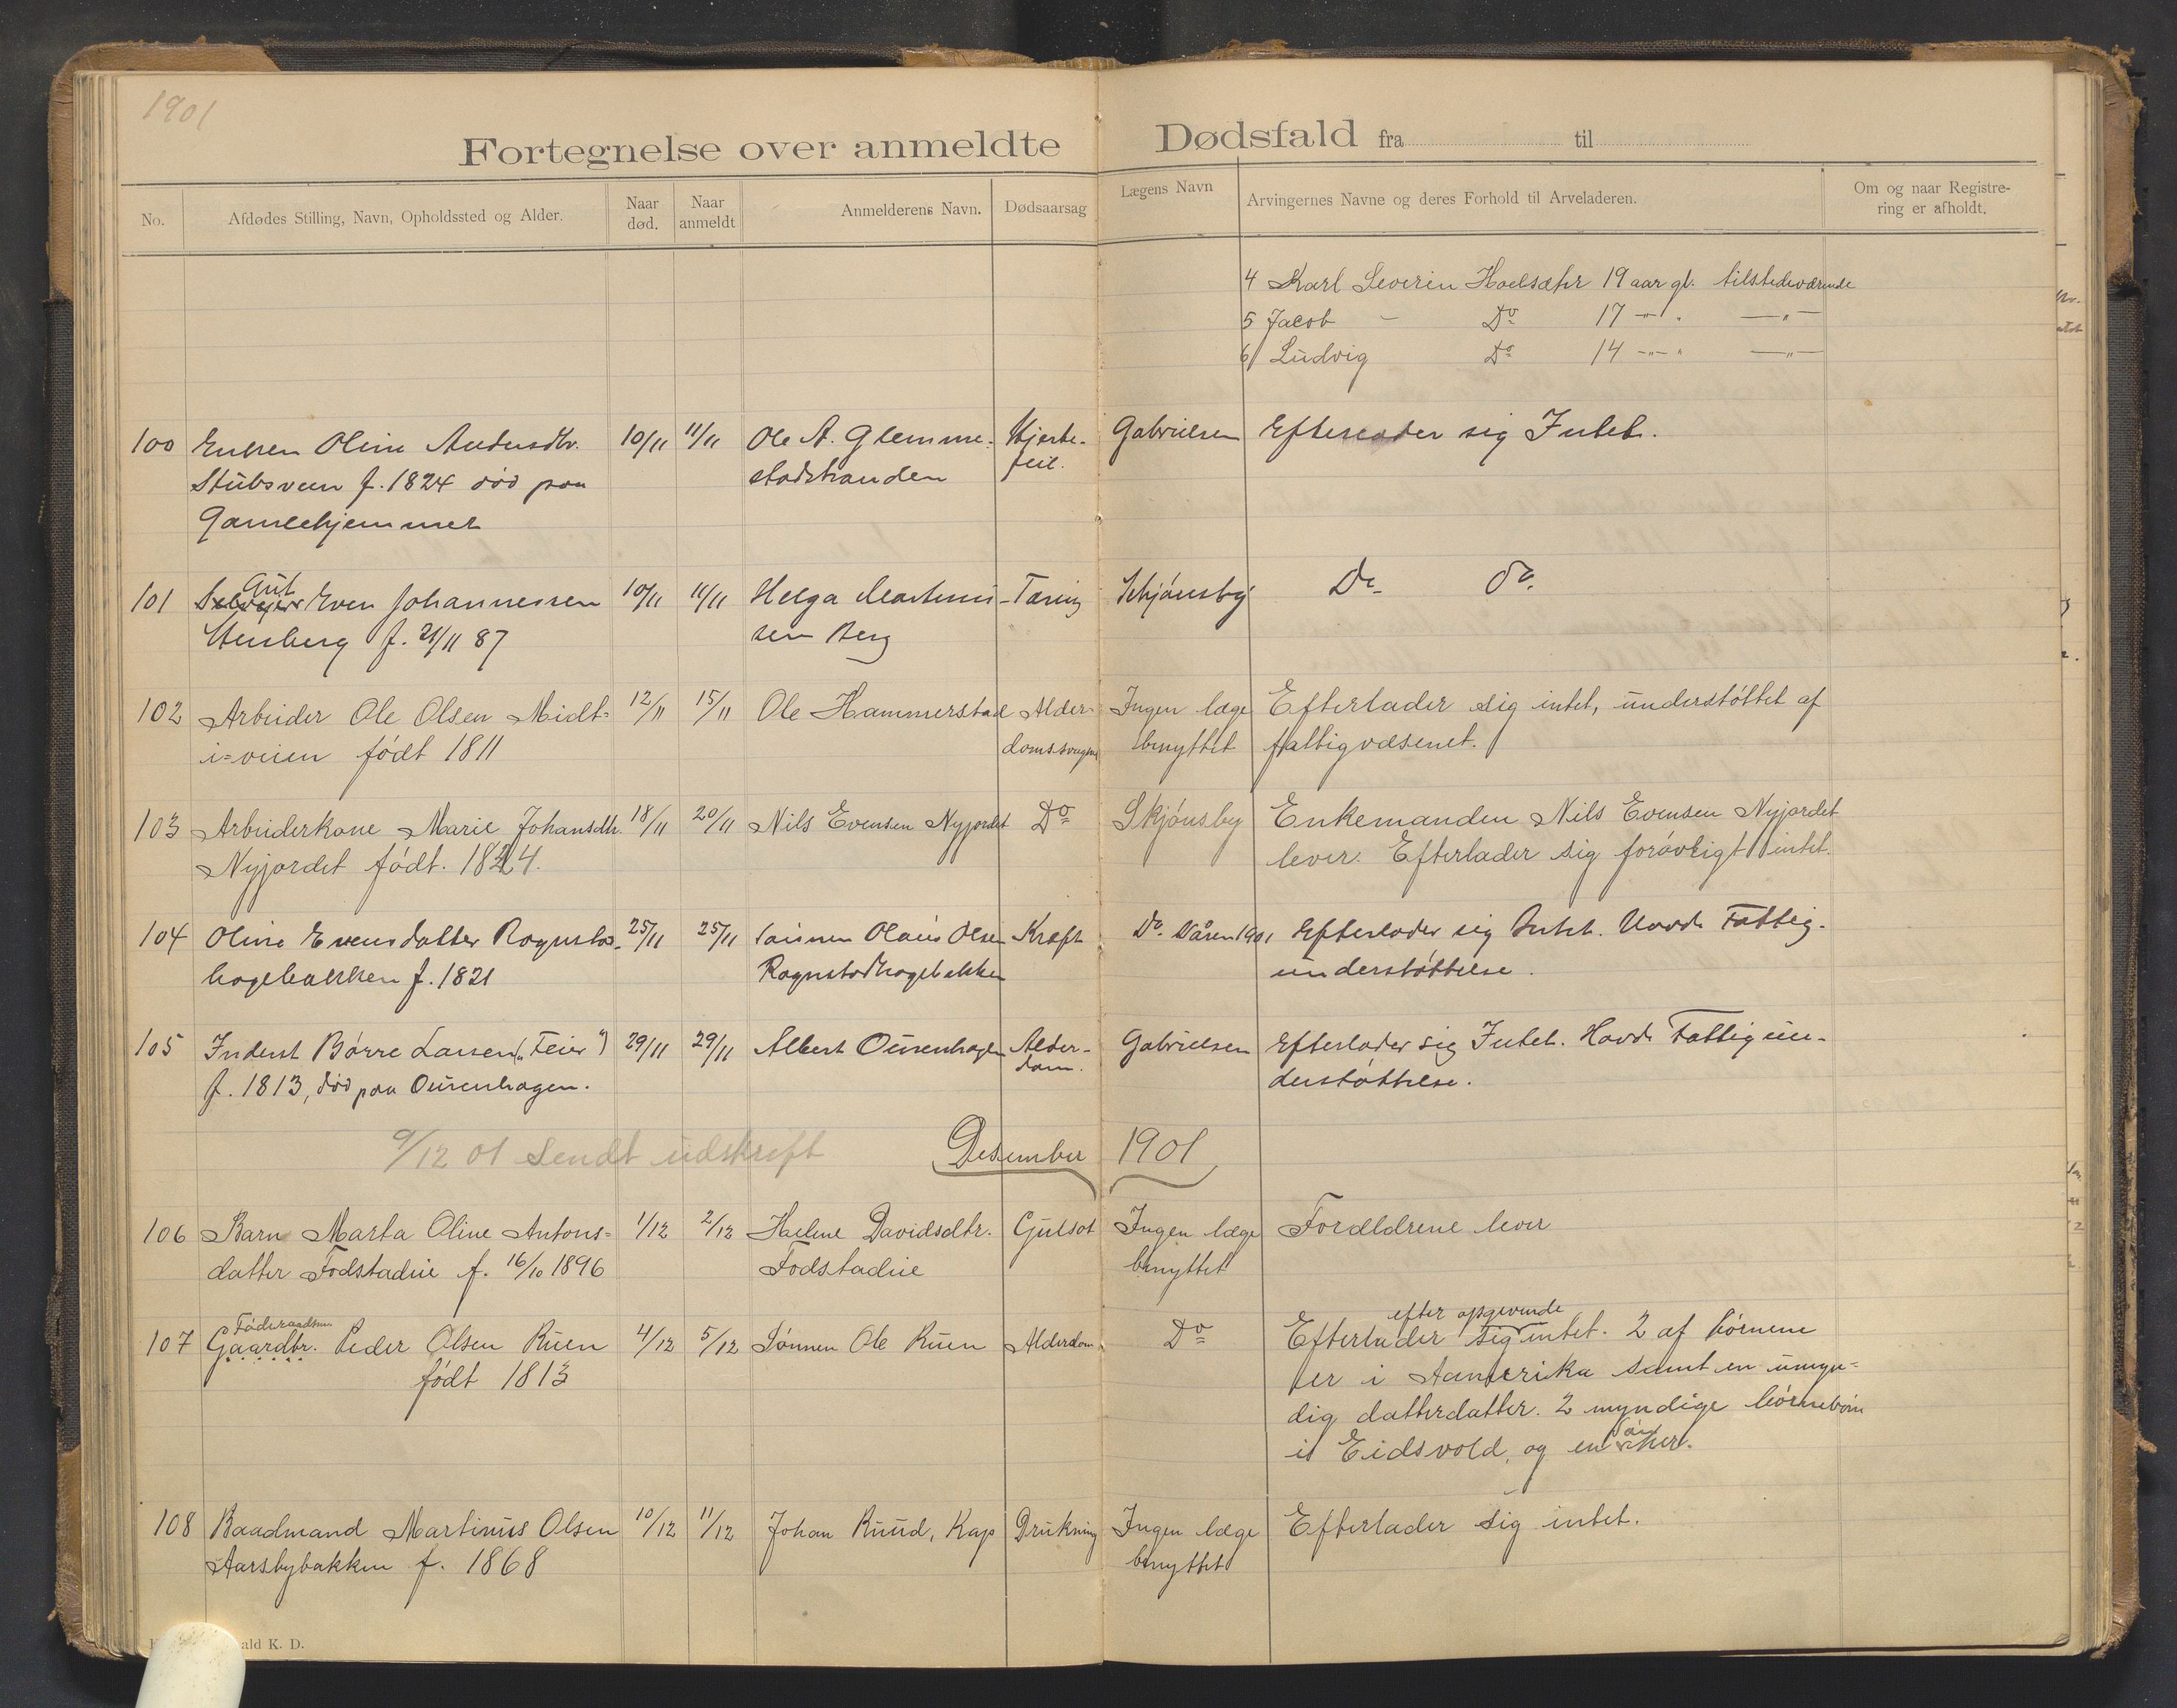 1901
Fortegnelse over anmeldte Dødsfald fra til
No. Afdødes Stilling, Navn, Opholdssted og Alder. Naar død. Naar anmeldt Anmelderens Navn. Dødsaarsag Lægens Navn Arvingernes Navne og deres Forhold til Arveladeren. Om og naar Registrering er afholdt.
4 Karl Severin Hoelsæter 19 aar gl. tilstedeværende
5 Jacob - Do 17 -"- -"-
6 Ludvig Do 14 -"- -"-
100 Enken Oline Andersdtr. 10/11 11/11 Ole A. Glemme- Hjerte- Gabrielsen Efterlader sig Intet.
Stubsveen f. 1824 død paa stadstranden feil.
Gamlehjemmet
Gut
101 Selveier Even Johannessen 10/11 11/11 Helga Martinus- Tæring Schjønsby Do. do.
Stensberg f. 21/11 87 sen Berg
102 Arbeider Ole Olsen Midt- 12/11 15/11 Ole Hammerstad Alder- Ingen læge Efterlader sig intet, understøttet af
i-veien født 1811 domssvagh benyttet fattigvæsenet.
103 Arbeiderkone Marie Johansdtr. 18/11 20/11 Nils Evensen Nyjordet Do Skjønsby Enkemanden Nils Evensen Nyjordet
Nyjordet født. 1824. lever. Efterlader sig forøvrigt intet.
104 Oline Evensdatter Rognstad- 25/11 25/11 Sønnen Olaus Olsen Kræft Do. Våren 1901 Efterlader sig Intet. Havde Fattig-
hagebakken f. 1821 Rognstadhagebakken understøttelse.
105 Inderst Børre Larsen („Feier") 29/11 29/11 Albert Ourenhagen Alder- Gabrielsen Efterlader sig Intet. Havde Fattigun-
f. 1813, død paa Ourenhagen. dom. derstøttelse.
9/12 01 Sendt udskrift Desember 1901
106 Barn Marta Oline Antons- 1/12 2/12 Helene Davidsdtr. Gulsot Ingen læge Forældrene lever
datter Fodstadeie f. 16/10 1896 Fodstadeie benyttet
Føderaadsm. efter opgivende
107 Gaardbr. Peder Olsen Ruen 4/12 5/12 Sønnen Ole Ruen Alderdom Do Efterlader sig intet. 2 af børnene
født 1813 er i Aamerika samt en umyn-
dig datterdatter. 2 myndige børnebørn
i Eidsvold, og en søn her.
108 Baadmand Martinus Olsen 10/12 11/12 Johan Ruud, Kap Drukning Ingen læge Efterlader sig intet.
Aarsbybakken f. 1868 benyttet
ald K. D.